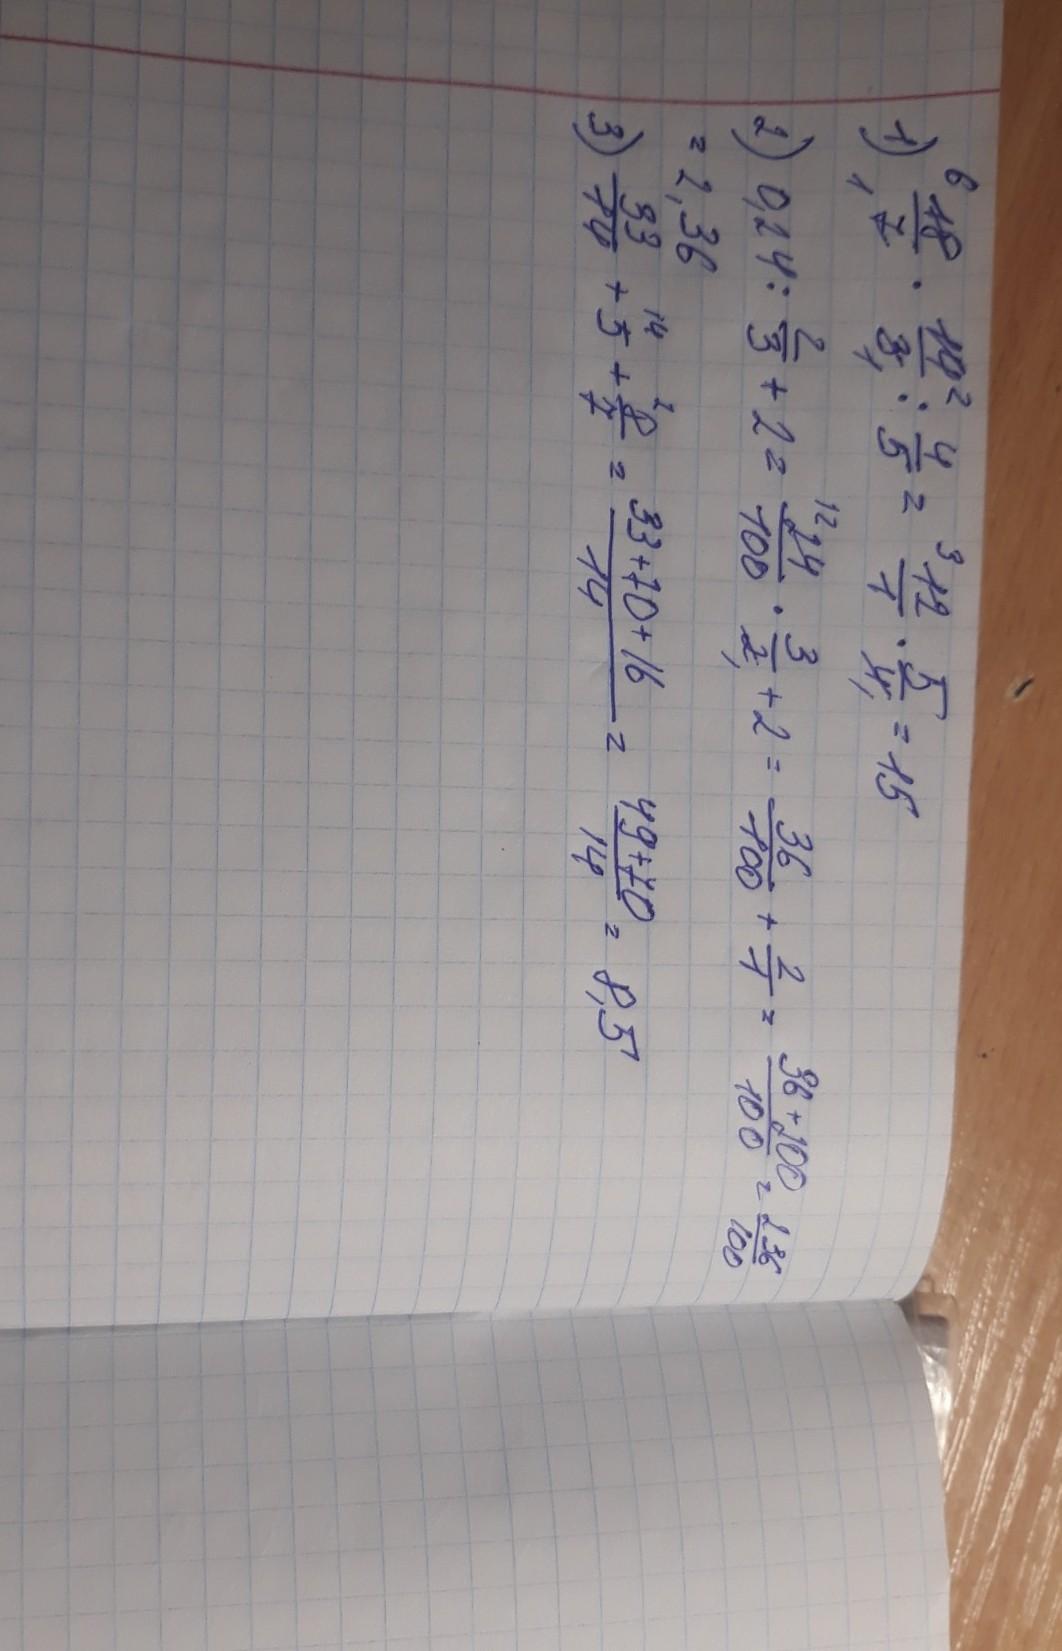 1) ⁶18/₁7 · 14²/3₁ : 4/5 = ³12/1 · 5/4₁ = 15
2) 0,24 : 2/3 + 2 = ¹²24/100 · 3/2₁ + 2 = 36/100 + 2/1 = 36+100/100 = 236/100
= 2,36
3) 33/14 + ¹⁴5 + ²8/7 = 33+70+16/14 = 49+70/14 = 8,5